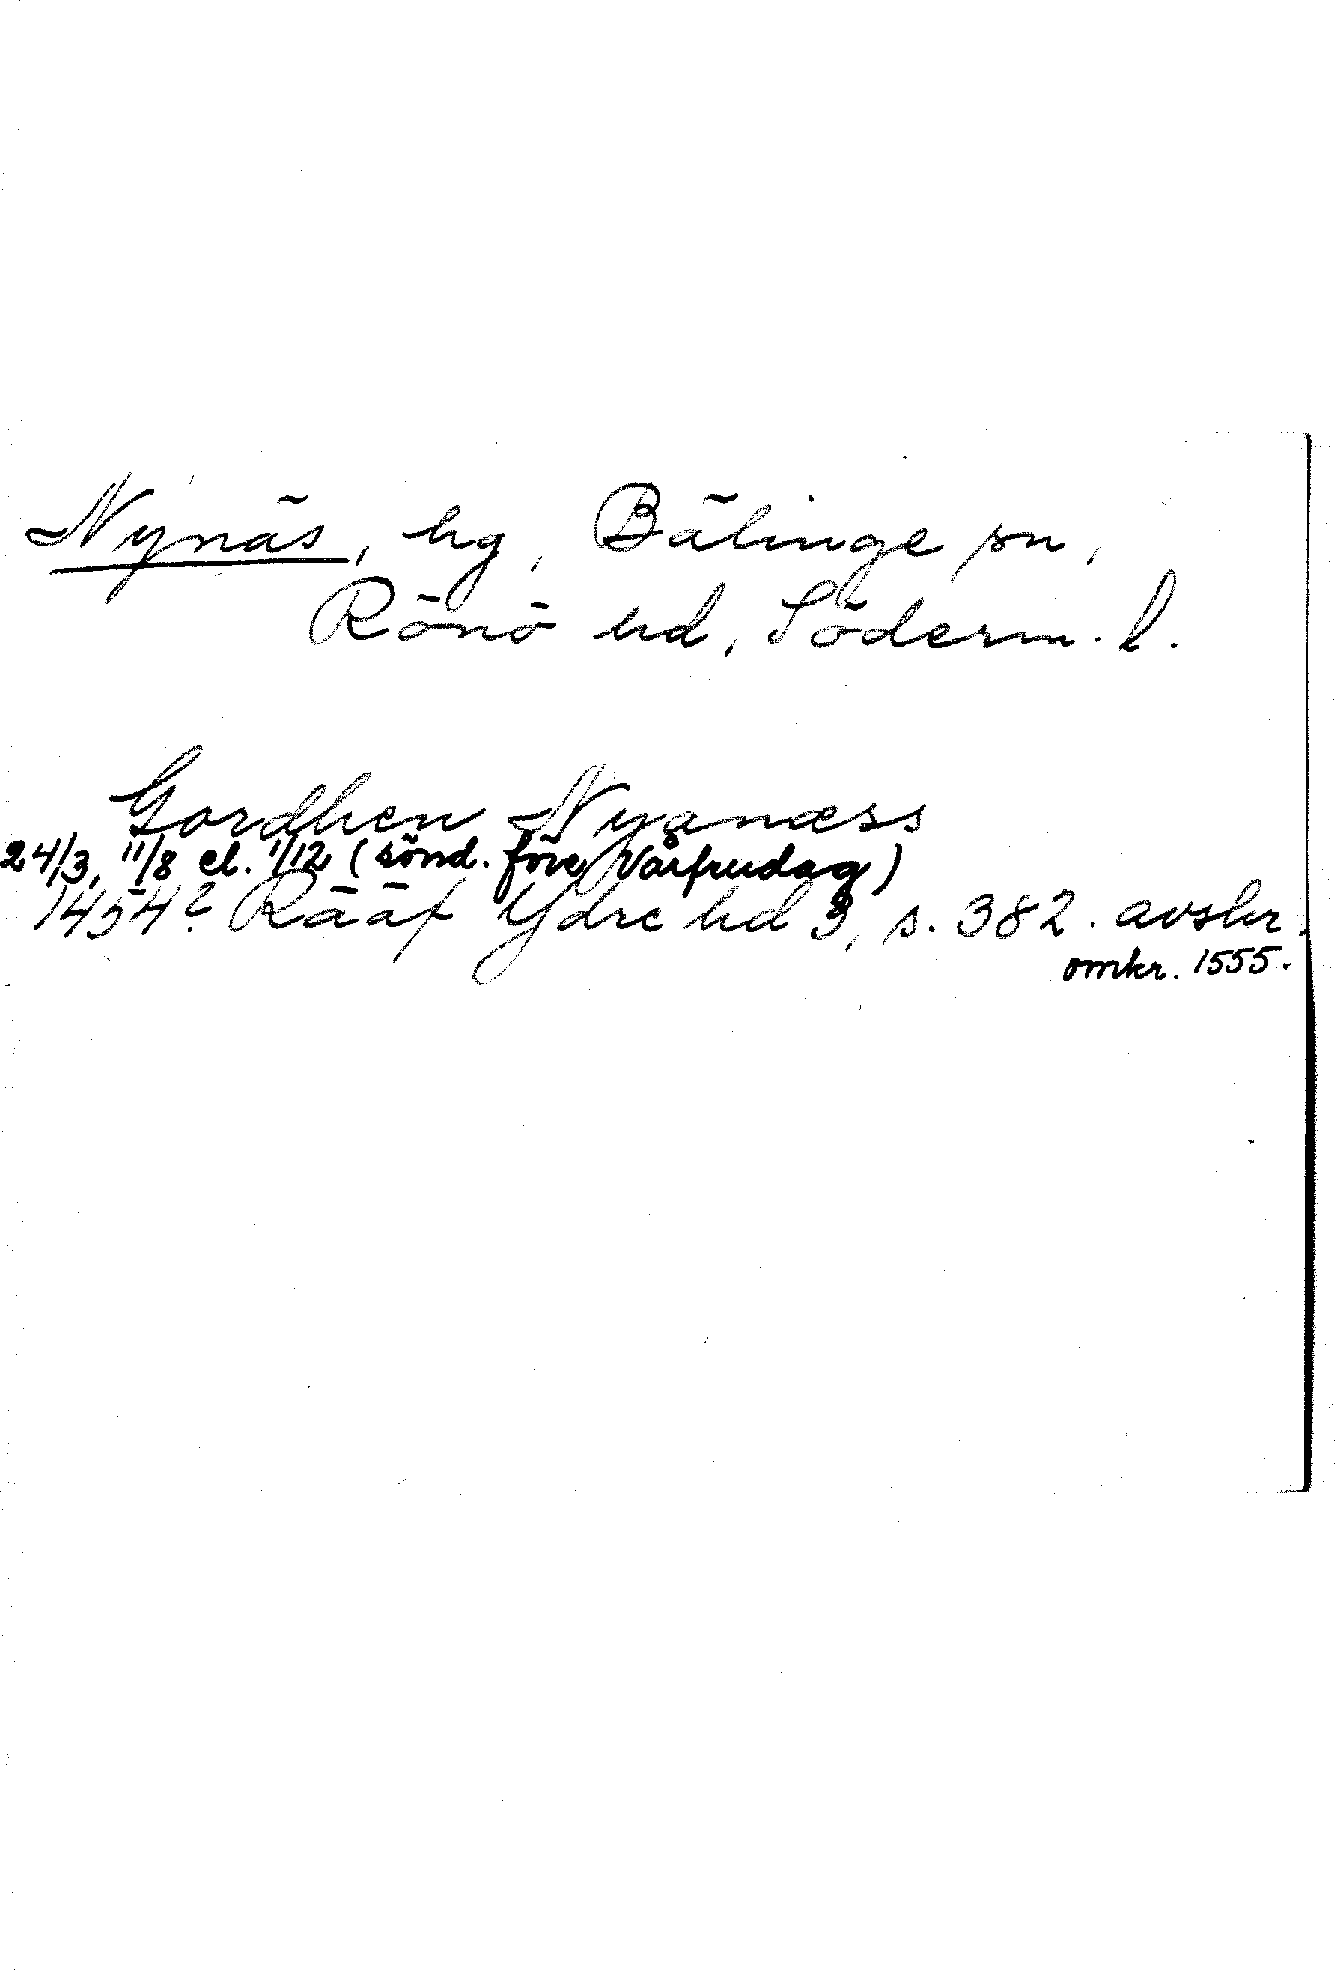 Nynäs, hg, Bälinge sn,
Rönö hd, Söderm. l.
Gordhen Nyanæss
24/3, 11/8 el. 1/12 (sönd. före Vårfrudag)
1454? Rääf Ydre hd 3, s. 382. avskr.
omkr. 1555.